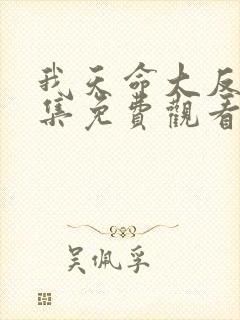 我天命大反
集免費觀看
吴佩孚